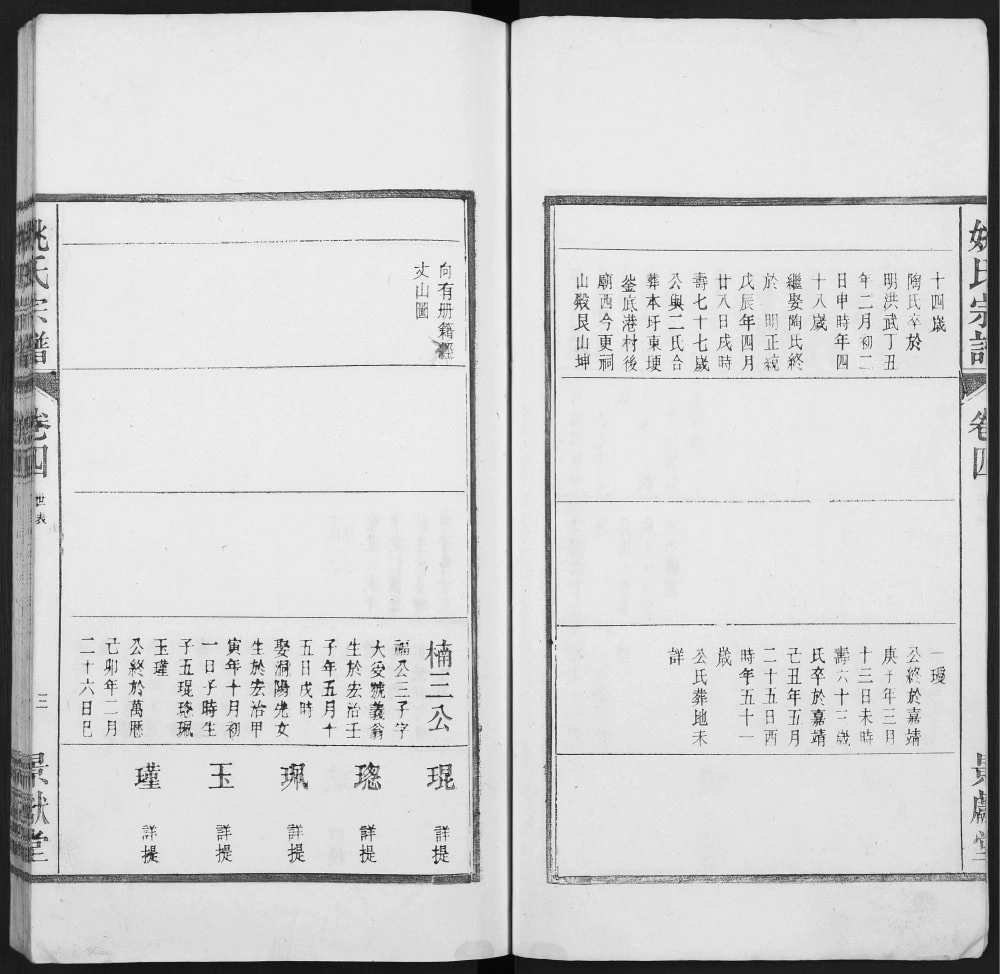 姚氏宗譜
卷四
景獻堂
十四歲
陶氏卒於
明洪武丁丑
年二月初二
日申時年四
十八歲
繼娶陶氏終
於 明正統
戊辰年四月
廿八日戌時
壽七十七歲
公與二氏合
葬本圩東埂
崟底港村後
廟西今更祠
山殿艮山坤
一璦
公終於嘉靖
庚子年三月
十三日未時
壽六十三歲
氏卒於嘉靖
己丑年五月
二十五日酉
時年五十一
歲
公氏葬地未
詳
向有册籍經
丈山圖
楠三公
福公三子字
大受號義翁
生於宏治壬
子年五月十
五日戌時
娶洞陽先女
生於宏治甲
寅年十月初
一日子時生
子五琨璁珮
玉瑾
公終於萬厯
己卯年二月
二十六日巳
琨 詳提
璁 詳提
珮 詳提
玉 詳提
瑾 詳提
姚氏宗譜
卷四
世表
三
景獻堂